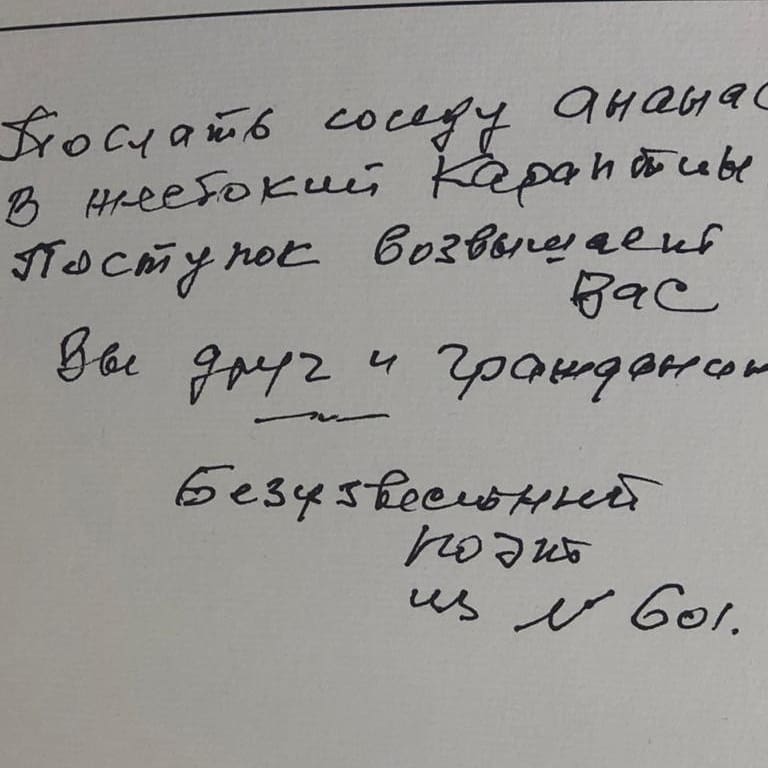 Послать соседу ананас
В жестокий карантины
Поступок возвышает
Вас
Вы друг и гражданин
Безызвестный
поэт
из № 601.